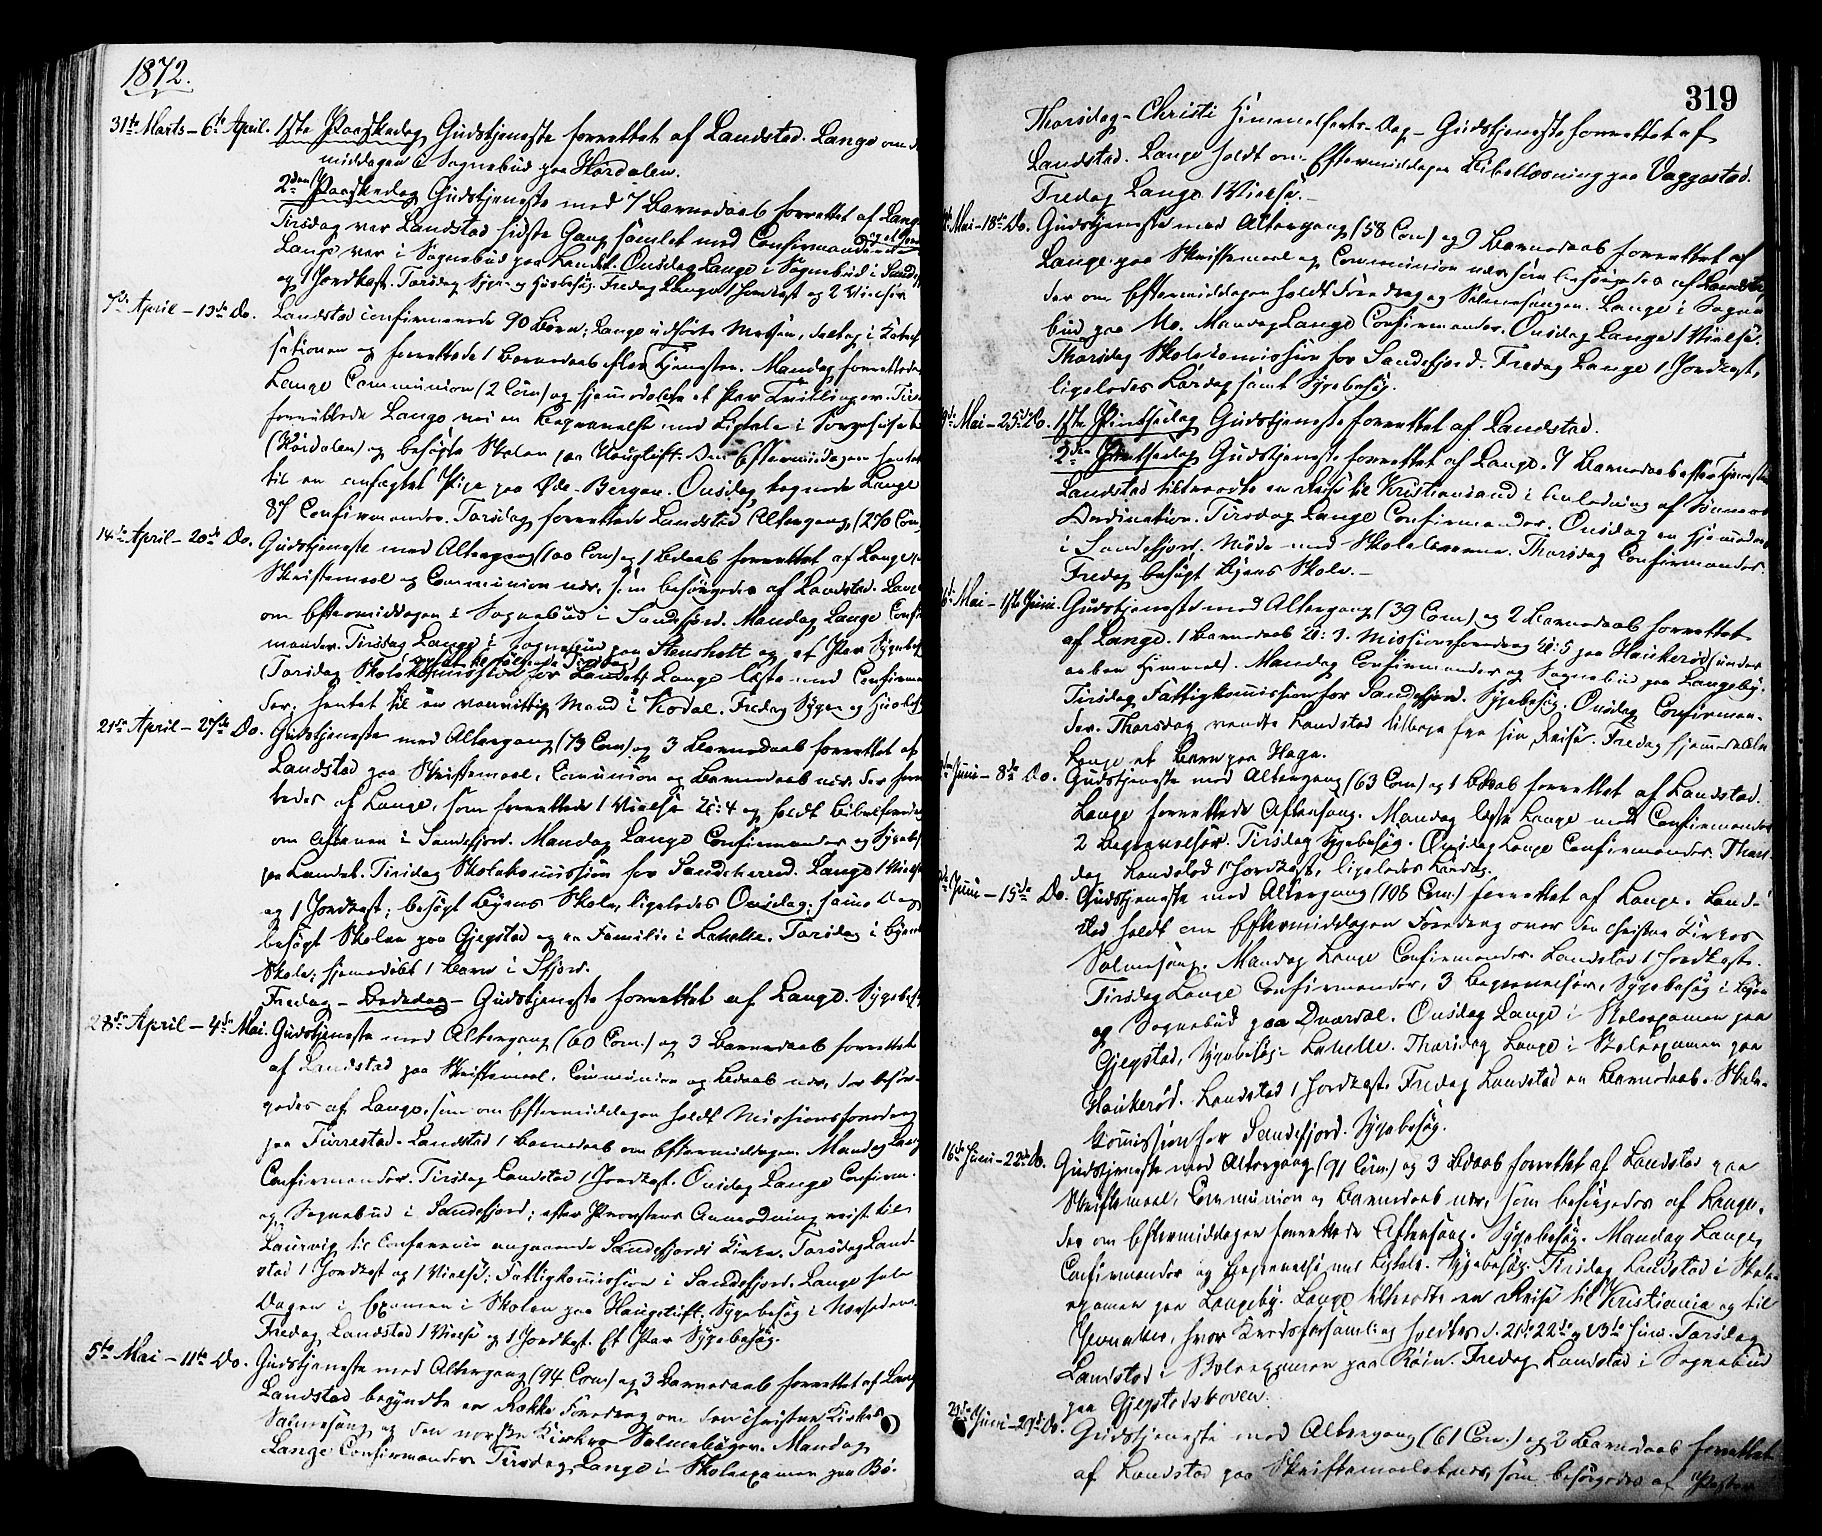 1872.
31te Marts - 6te April. 1ste Paaskedag Gudstjeneste forrettet af Landstad. Lange om
middagen i Sognebud paa Hördalen.
2den Paaskedag Gudstjeneste med 7 Barnedaab forrettet af Lange
Tirsdag var Landstad sidste Gang samlet med Confirmanderne
Lange var i Sognebud paa Landet. Onsdag Lange i Sognebud i
og 1 Jordkast. Torsdag Syge- og Husbesög. Fredag Lange 1 Jordkast og 2 Vielser
7de April - 13de Do. Landstad confirmerede 90 Börn; Lange udförte Messen, deltog i
sationen og forrettede 1 Barnedaab efter Tjenesten. Mandag forrettede
Lange Communion (2 Com) og hjemmedöbte et Par Tvillinger.
forrettede Lange ved en Begravelse med Ligtale i Sörgehuset
(Hördalen) og besögte Skolen paa Haugtuft. Om Eftermiddagen hentet
til en anfægtet Pige paa Øde-Bergan. Onsdag tegnede Lange
87 Confirmander. Torsdag forrettede Landstad Altergang (270 Com
14de April - 20de Do. Gudstjeneste med Altergang (100 Com) og 1 Bdaab forrettet af Lange
Skriftemaal og Communion nær, som besörgedes af Landstad. Lange
om Eftermiddagen i Sognebud i Sandefjord. Mandag Lange Confir
mander. Tirsdag Lange i Sognebud paa Stensholt og et Par Sygebesög
(Torsdag Skolekommission for Landet) Lange læste med Confirman
der; hentet til en vanvittig Mand i Kodal. Fredag Syge- og Husbesög
21de April - 27de Do. Gudstjeneste med Altergang (73 Com) og 3 Barnedaab forrettet af
Landstad paa Skriftemaal, Comunion og Barnedaab nær, der forret
tedes af Lange, som forrettede 1 Vielse Kl: 4 og holdt Bibelforedrag
om Aftenen i Sandefjord. Mandag Lange Confirmander og Sygebesög
paa Landet. Tirsdag Skolekommission for Sandeherred. Lange 1 Vielse
og 1 Jordkast; besögt Byens Skole, ligeledes Onsdag; samme Dag
besögt Skolen paa Gjegstad og en Familie i Lahelle. Torsdag i Byens
Skole; hjemmedöbt 1 Barn i Sfjord.
Fredag - Bededag - Gudstjeneste forrettet af Lange. Sygebesög
28de April - 4de Mai. Gudstjeneste med Altergang (60 Com.) og 3 Barnedaab forrettet
af Landstad paa Skriftemaal, Communion og Bdaab nær, der besör-
gedes af Lange, som om Eftermiddagen holdt Missionsforedrag
paa Furrestad. Landstad 1 Barnedaab om Eftermiddagen. Mandag Lange
Confirmander. Tirsdag Landstad 1 Jordkast. Onsdag Lange Confirm.
og Sognebud i Sandefjord; efter Provstens Anmodning reist til
Laurvig til Conference angaaende Sandefjords Kirke. Torsdag Land-
stad 1 Jordkast og 1 Vielse; Fattigkommission i Sandefjord. Lange hele
Dagen i Examen i Skolen paa Haugtuft; Sygebesög i
Fredag Landstad 1 Vielse og 1 Jordkast. Et Par Sygebesög.
5te Mai - 11te Do. Gudstjeneste med Altergang (94 Com) og 3 Barnedaab forrettet af Lange
Landstad begyndte en Række Foredrag om den christne Kirkes
Salmesang og den norske Kirkes Salmebøger. Mandag
Lange Confirmander. Tirsdag Lange i Skoleexamen paa Bö.
319
Thorsdag - Christi Himmelfarts-Dag - Gudstjeneste forrettet af
Landstad. Lange holdt om Eftermiddagen Bibellæsning paa Vaggestad.
Fredag Lange 1 Vielse.
Mai - 18de Do. Gudstjeneste med Altergang (58 Com) og 9 Barnedaab forrettet af
Lange paa Skriftemaal og Communion nær som besörgedes af Landstad,
der om Eftermiddagen holdt Foredrag og Salmesangen. Lange i Sogne
bud paa Mo. Mandag Lange Confirmander. Onsdag Lange 1 Vielse.
Thorsdag Skolekomission for Sandefjord. Fredag Lange 1 Jordkast,
ligeledes Lördag samt Sygebesög.
Mai - 25de Do. 1ste Pintsedag Gudstjeneste forrettet af Landstad.
2den Pintsedag Gudstjeneste forrettet af Lange. 7 Barnedaab efter Tjenesten
Landstad tiltraadte en Reise til Kristiansand i Anledning af Sönnens
Ordination. Tirsdag Lange Confirmander. Onsdag en Hjemmedaab
i Sandefjord. Möde med Skolelærerne. Thorsdag Confirmander.
Fredag besögt Byens Skole.
Mai - 1ste Juni. Gudstjeneste med Altergang (39 Com) og 2 Barnedaab forrettet
af Lange. 1 Barnedaab Kl: 3. Missionsforedrag Kl: 5 paa Haukeröd (under
aaben Himmel). Mandag Confirmander og Sognebud paa Langeby.
Tirsdag Fattigkommission for Sandefjord. Sygebesög. Onsdag Confirman-
der. Thorsdag vendte Landstad tilbage fra sin Reise. Fredag hjemmedöbte
Lange et Barn paa Haga.
Juni - 8de Do. Gudstjeneste med Altergang (63 Com) og 1 Bdaab forrettet af Landstad.
Lange forrettede Aftensang. Mandag læste Lange med Confirmander
2 Begravelser. Tirsdag Sygebesög. Onsdag Lange Confirmander. Thors-
dag Landstad 1 Jordkast, ligeledes Lördag.
Juni - 15de Do. Gudstjeneste med Altergang (106 Com.) forrettet af Lange. Land-
stad holdt om Eftermiddagen Foredrag over den christne Kirkes
Salmesang. Mandag Lange Confirmander. Landstad 1 Jordkast.
Tirsdag Lange Confirmander, 3 Begravelser, Sygebesög i Byen
og Sognebud paa Dværdal. Onsdag Lange i Skoleexamen paa
Gjegstad, Sygebesög i Lahelle. Thorsdag Lange i Skoleexamen paa
Haukeröd. Landstad 1 Jordkast. Fredag Landstad en Barnedaab. Skole-
kommission for Sandefjord. Sygebesög.
16de Juni - 22de Do. Gudstjeneste med Altergang (91 Com) og 3 Bdaab forrettet af Landstad paa
Skriftemaal, Communion og Barnedaab nær, som besörgedes af Lange,
der om Eftermiddagen forrettede Aftensang. Sygebesög. Mandag Lange
Confirmander og Begravelse med Ligtale. Sygebesög. Tirsdag Landstad i Skole-
examen paa Langeby. Lange tiltraadte en Reise til Kristiania og til
Jevnaker, hvor Kredsforsamling holdtes d. 21de 22de og 23de Juni. Torsdag
Landstad i Skoleexamen paa Röin. Fredag Landstad i Sognebud
paa Gjegstadskoven.
Juni - 29de Do. Gudstjeneste med Altergang (61 Com.) og 2 Barnedaab forrettet
af Landstad paa Skriftemaalet nær, som besörgedes af Pastor